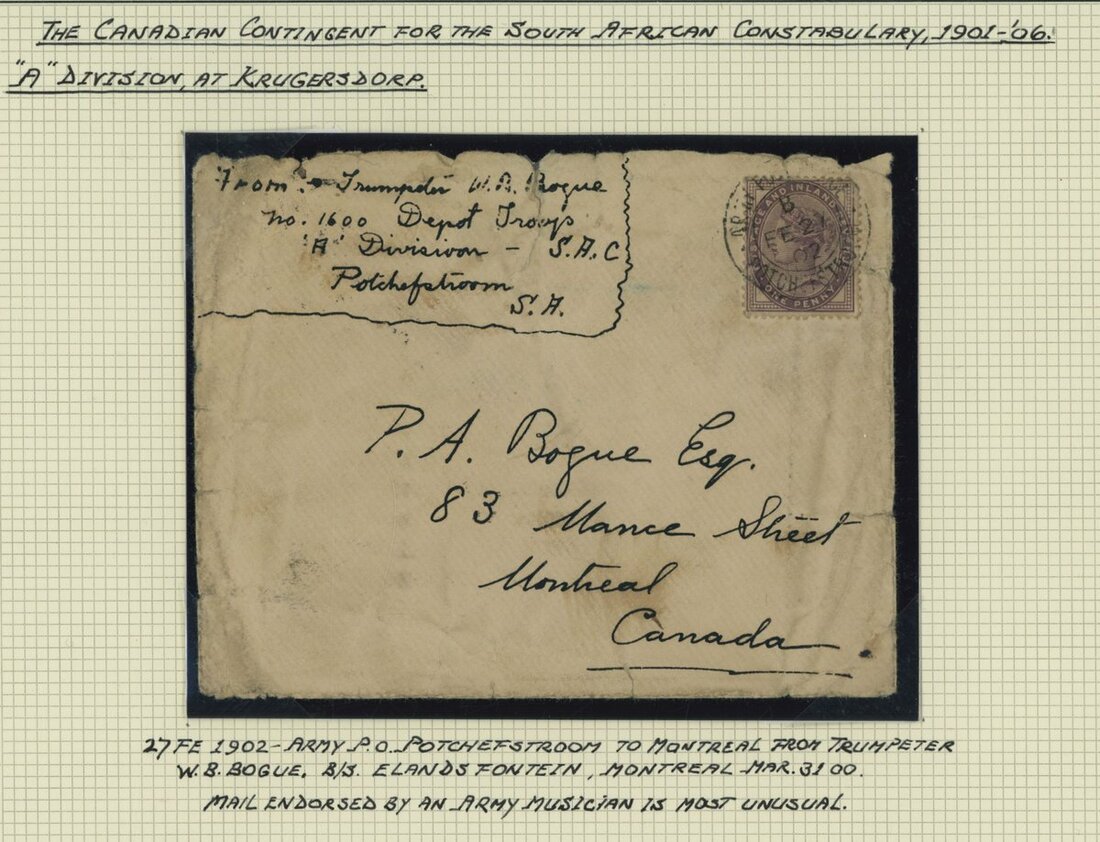 THE CANADIAN CONTINGENT FOR THE SOUTH AFRICAN CONSTABULARY, 1901-'06.
"A" DIVISION, AT KRUGERSDORP.
From:- Trumpeter W.B. Bogue
No. 1600 Depot Troop
"A" Division - S.A.C
Potchefstroom
S.A.
POSTAGE AND INLAND REVENUE
ONE PENNY
P. A. Bogue Esq.
83 Mance Street
Montreal
Canada
27 FE 1902 - ARMY P.O. POTCHEFSTROOM TO MONTREAL FROM TRUMPETER
W.B. BOGUE. B/S. ELANDSFONTEIN, MONTREAL MAR. 31 00.
MAIL ENDORSED BY AN ARMY MUSICIAN IS MOST UNUSUAL.